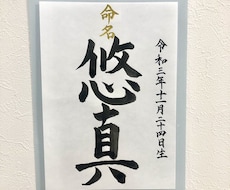 命名
悠真
令和三年十一月二十四日生